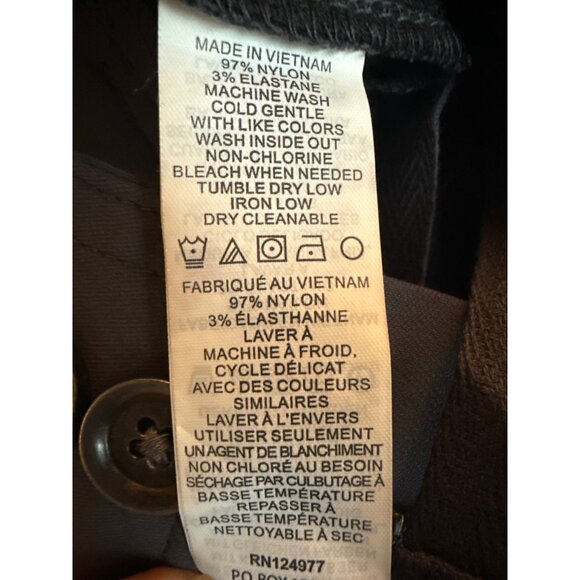 MADE IN VIETNAM
97% NYLON
3% ELASTANE
MACHINE WASH
COLD GENTLE
WITH LIKE COLORS
WASH INSIDE OUT
NON-CHLORINE
BLEACH WHEN NEEDED
TUMBLE DRY LOW
IRON LOW
DRY CLEANABLE
FABRIQUÉ AU VIETNAM
97% NYLON
3% ÉLASTHANNE
LAVER À
MACHINE À FROID,
CYCLE DÉLICAT
AVEC DES COULEURS
SIMILAIRES
LAVER À L'ENVERS
UTILISER SEULEMENT
UN AGENT DE BLANCHIMENT
NON CHLORÉ AU BESOIN
SÉCHAGE PAR CULBUTAGE À
BASSE TEMPÉRATURE
REPASSER À
BASSE TEMPÉRATURE
NETTOYABLE À SEC
RN124977
PO BOX